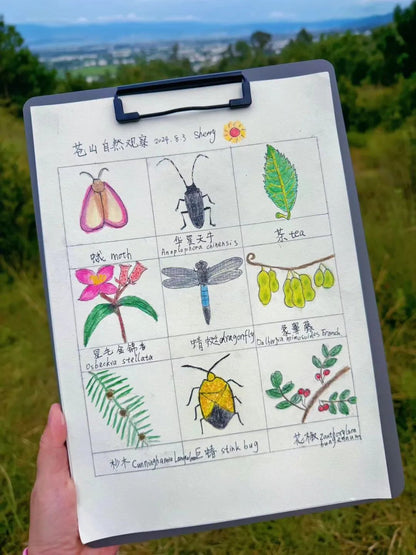 苍山自然观察 2024.5.3 Sheng
蛾 moth
华星天牛
Anoplophora chinensis
茶 tea
星毛金锦香
Osbeckia stellata
蜻蜓 dragonfly
象鼻藤
Dalbergia mimosoides Franch
杉木 Cunninghamia lanceolata
巨蝽 stink bug
花椒 Zanthoxylum
bungeanum